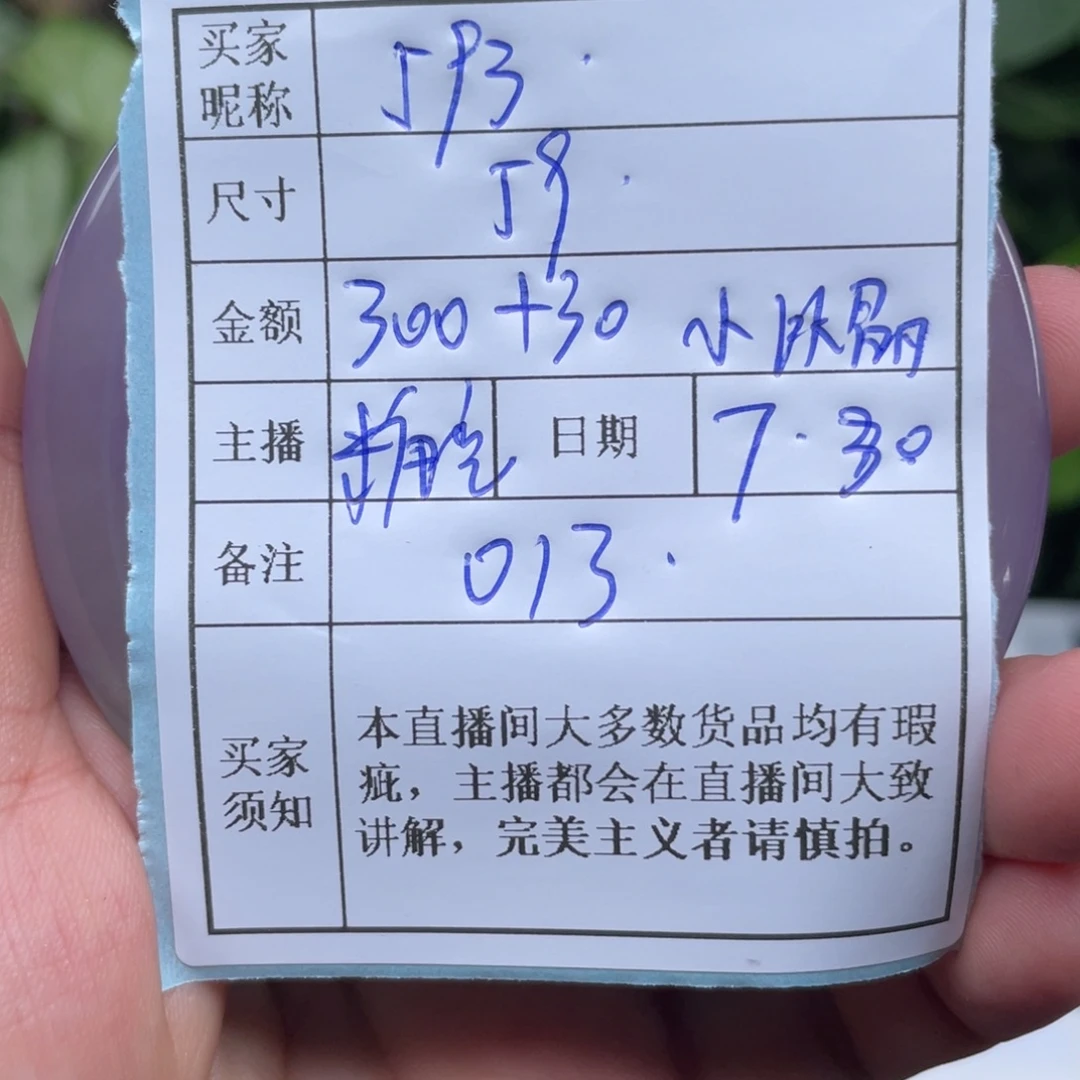 买家昵称 593.
尺寸 59.
金额 300+30 小
主播 日期 7.30
备注 013.
买家须知
本直播间大多数货品均有瑕
疵，主播都会在直播间大致
讲解，完美主义者请慎拍。